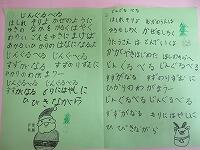 じんぐるべる
はしれそりよ かぜのように
ゆきの なかを かるくはやく
わらいごえを ゆきにまけば
あかるい ひかりの はなになるよ
じんぐるべる じんぐるべる
すずがなる すずの りずむに
ひかりの わがまう
じんぐるべる じんぐるべる
すずがなる もりに はやしに
ひびきながら
じんぐるべる
はしれ そりよ おかのうえは
ゆき
うたごえは とんでいくよ
かがやきはじめた ほしのそらへ
じんぐるべる じんぐるべる
すずがなる すずのりずむに
ひかりのわがまう
じんぐるべる じんぐるべる
すずがなる もりに はやしに
ひびきながら